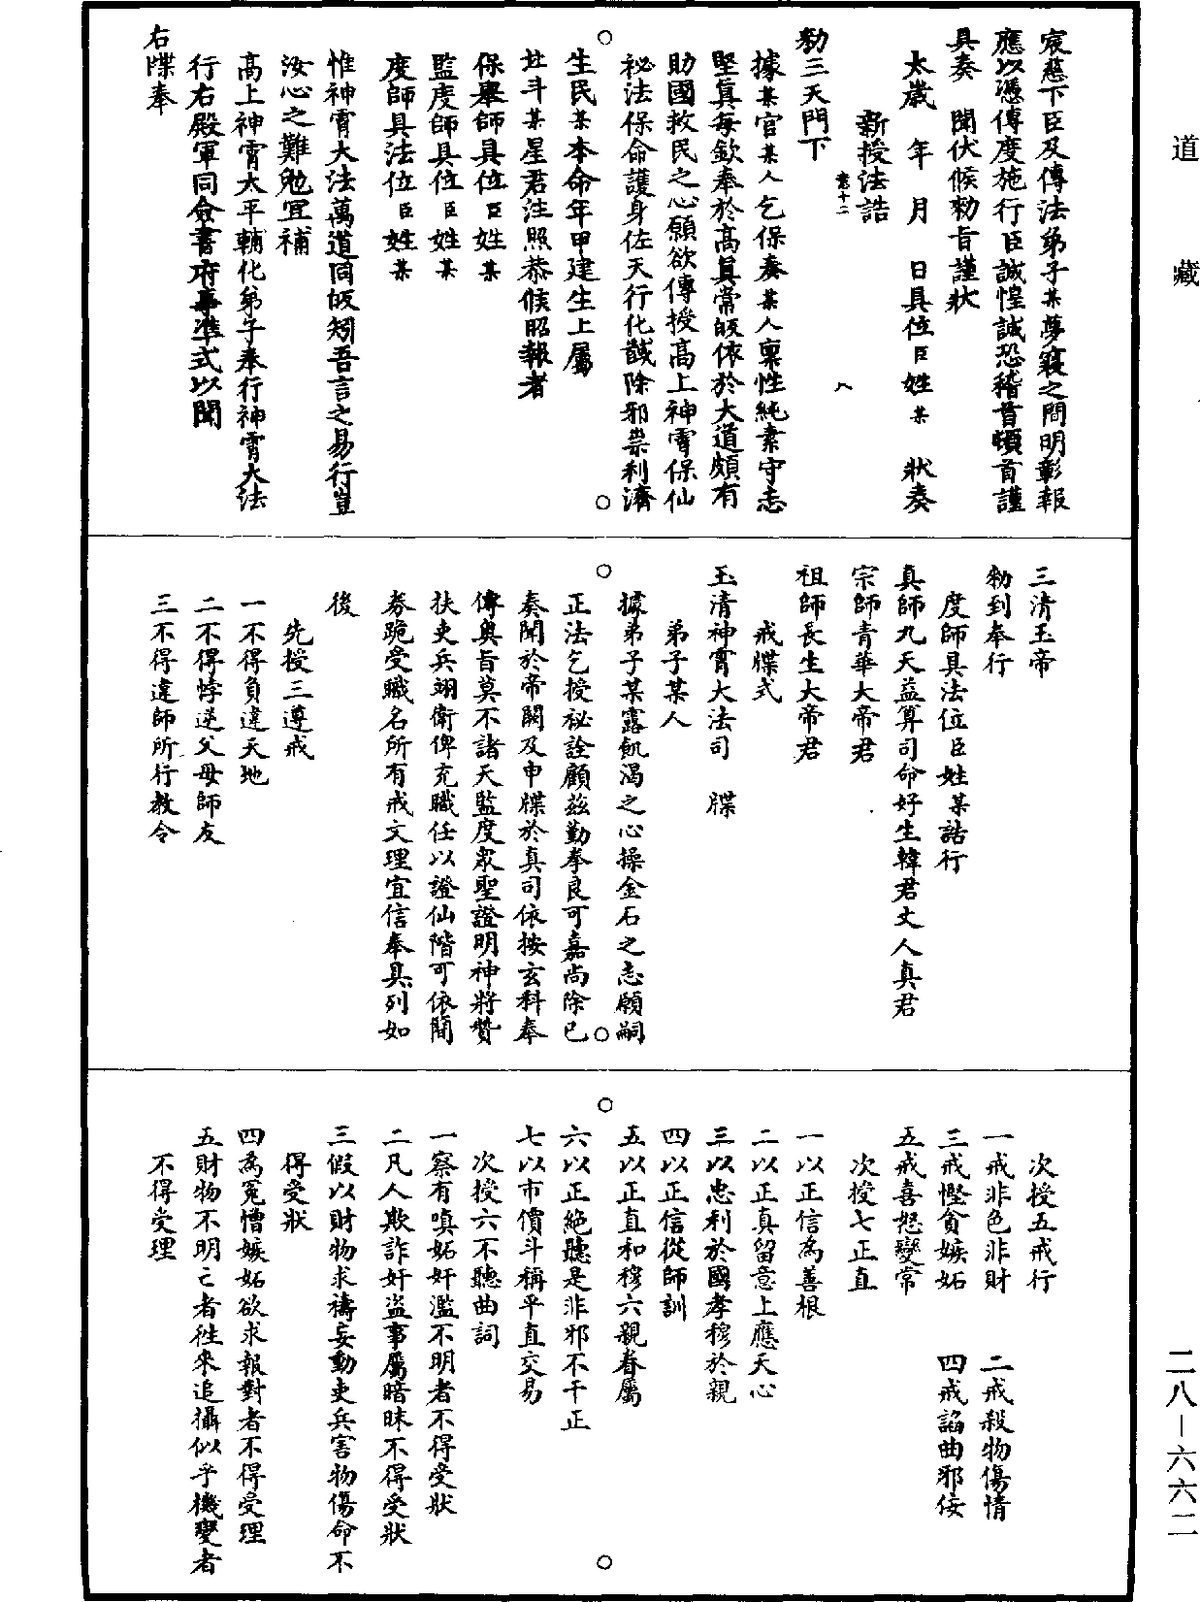 道藏
宸慈下臣及傳法弟子某夢寢之間明彰報
應以憑傳度施行臣誠惶誠恐稽首頓首謹
具奏　聞伏候勑旨謹狀
太歲　年　月　日具位臣姓某　狀奏
新授法誥
八
勑三天門下
據某官某人乞保奏某人稟性純素守志
堅真每欽奉於高真常皈依於大道頗有
助國救民之心願欲傳授高上神霄保仙
祕法保命護身佐天行化馘除邪祟利濟
生民某本命年甲建生上屬
北斗某星君注照恭候昭報者
保舉師具位臣姓某
監度師具位臣姓某
度師具法位臣姓某
惟神霄大法萬道同皈矧吾言之易行豈
汝心之難勉宜補
高上神霄太平輔化弟子奉行神霄大法
行右殿軍同僉書府事准式以聞
右牒奉
三清玉帝
勑到奉行
度師具法位臣姓某誥行
真師九天益算司命好生韓君丈人真君
宗師青華大帝君
祖師長生大帝君
戒牒式
玉清神霄大法司　牒
弟子某人
據弟子某露飢渴之心操金石之志願嗣
正法乞授祕詮顧茲勤拳良可嘉尚除已
奏聞於帝闕及申牒於真司依按玄科奉
傳奧旨莫不諸天監度眾聖證明神將贊
扶吏兵翊衛俾充職任以證仙階可依簡
券跪受職名所有戒文理宜信奉具列如
後
先授三遵戒
一不得負違天地
二不得悖逆父母師友
三不得違師所行教令
次授五戒行
一戒非色非財　二戒殺物傷情
三戒慳貪嫉妬　四戒諂曲邪佞
五戒喜怒變常
次授七正直
一以正信為善根
二以正真留意上應天心
三以忠利於國孝穆於親
四以正信從師訓
五以正直和穆六親眷屬
六以正絕聽是非邪不干正
七以市價斗稱平直交易
次授六不聽曲詞
一察有嗔妬奸濫不明者不得受狀
二凡人欺詐奸盜事屬暗昧不得受狀
三假以財物求禱妄動吏兵害物傷命不
得受狀
四為冤憎嫉妬欲求報對者不得受理
五財物不明亡者徃來追攝似乎機變者
不得受理
二八－六六二